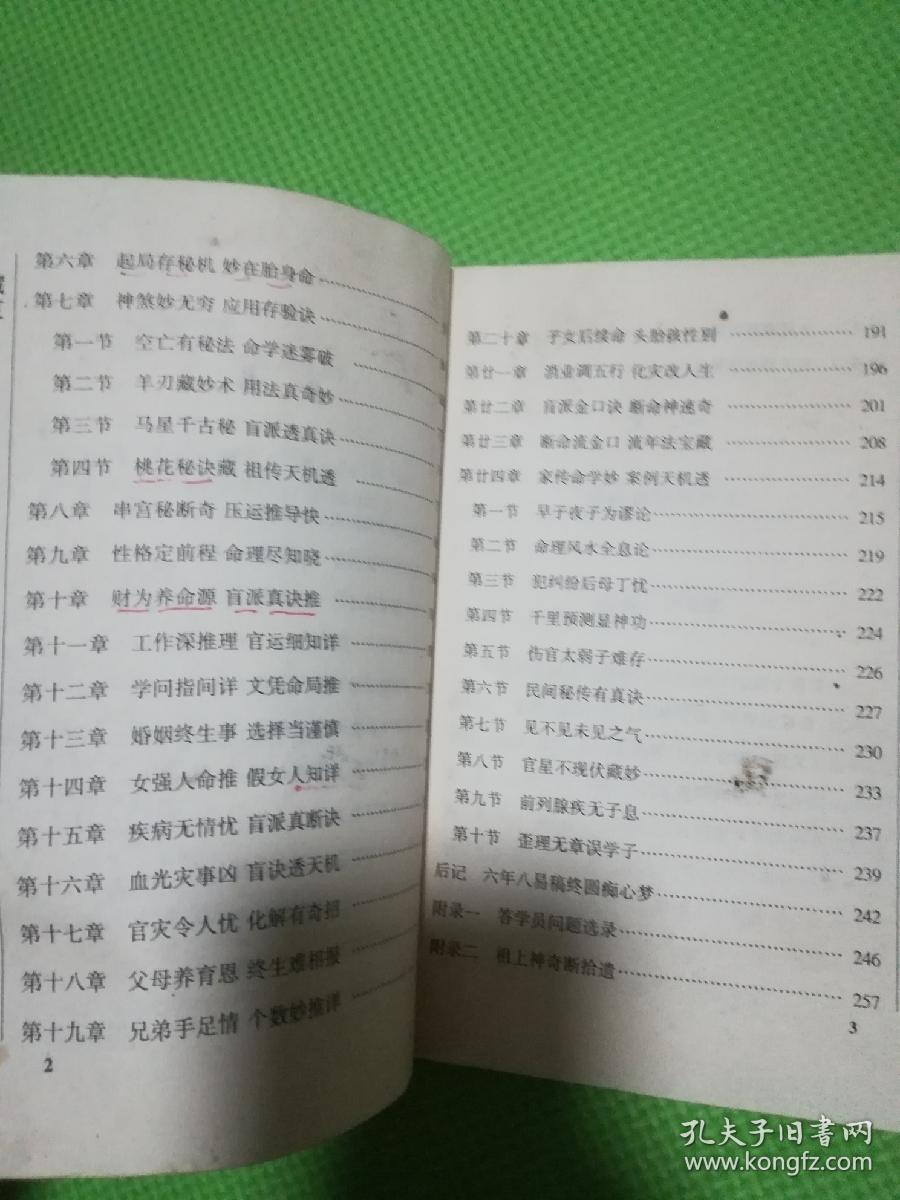 第六章 起局存秘机 妙在胎身命
第七章 神煞妙无穷 应用存验诀
第一节 空亡有秘法 命学迷雾破
第二节 羊刃藏妙术 用法真奇妙
第三节 马星千古秘 盲派透真诀
第四节 桃花秘诀藏 祖传天机透
第八章 串宫秘断奇 压运推导快
第九章 性格定前程 命理尽知晓
第十章 财为养命源 盲派真诀推
第十一章 工作深推理 官运细知详
第十二章 学问指间详 文凭命局推
第十三章 婚姻终生事 选择当谨慎
第十四章 女强人命推 假女人知详
第十五章 疾病无情忧 盲派真断诀
第十六章 血光灾事凶 盲诀透天机
第十七章 官灾令人忧 化解有奇招
第十八章 父母养育恩 终生难相报
第十九章 兄弟手足情 个数妙推详
2
第二十章 子女后续命 头胎孩性别 191
第廿一章 消业调五行 化灾改人生 196
第廿二章 盲派金口诀 断命神速奇 201
第廿三章 断命流金口 流年法宝藏 208
第廿四章 家传命学妙 案例天机透 214
第一节 早子夜子为谬论 215
第二节 命理风水全息论 219
第三节 犯纠纷后母丁忧 222
第四节 千里预测显神功 224
第五节 伤官太弱子难存 226
第六节 民间秘传有真诀 227
第七节 见不见未见之气 230
第八节 官星不现伏藏妙 233
第九节 前列腺疾无子息 237
第十节 歪理无章误学子 239
后记 六年八易稿终圆痴心梦 242
附录一 答学员问题选录 246
附录二 祖上神奇断拾遗 257
3
孔夫子旧书网
www.kongfz.com